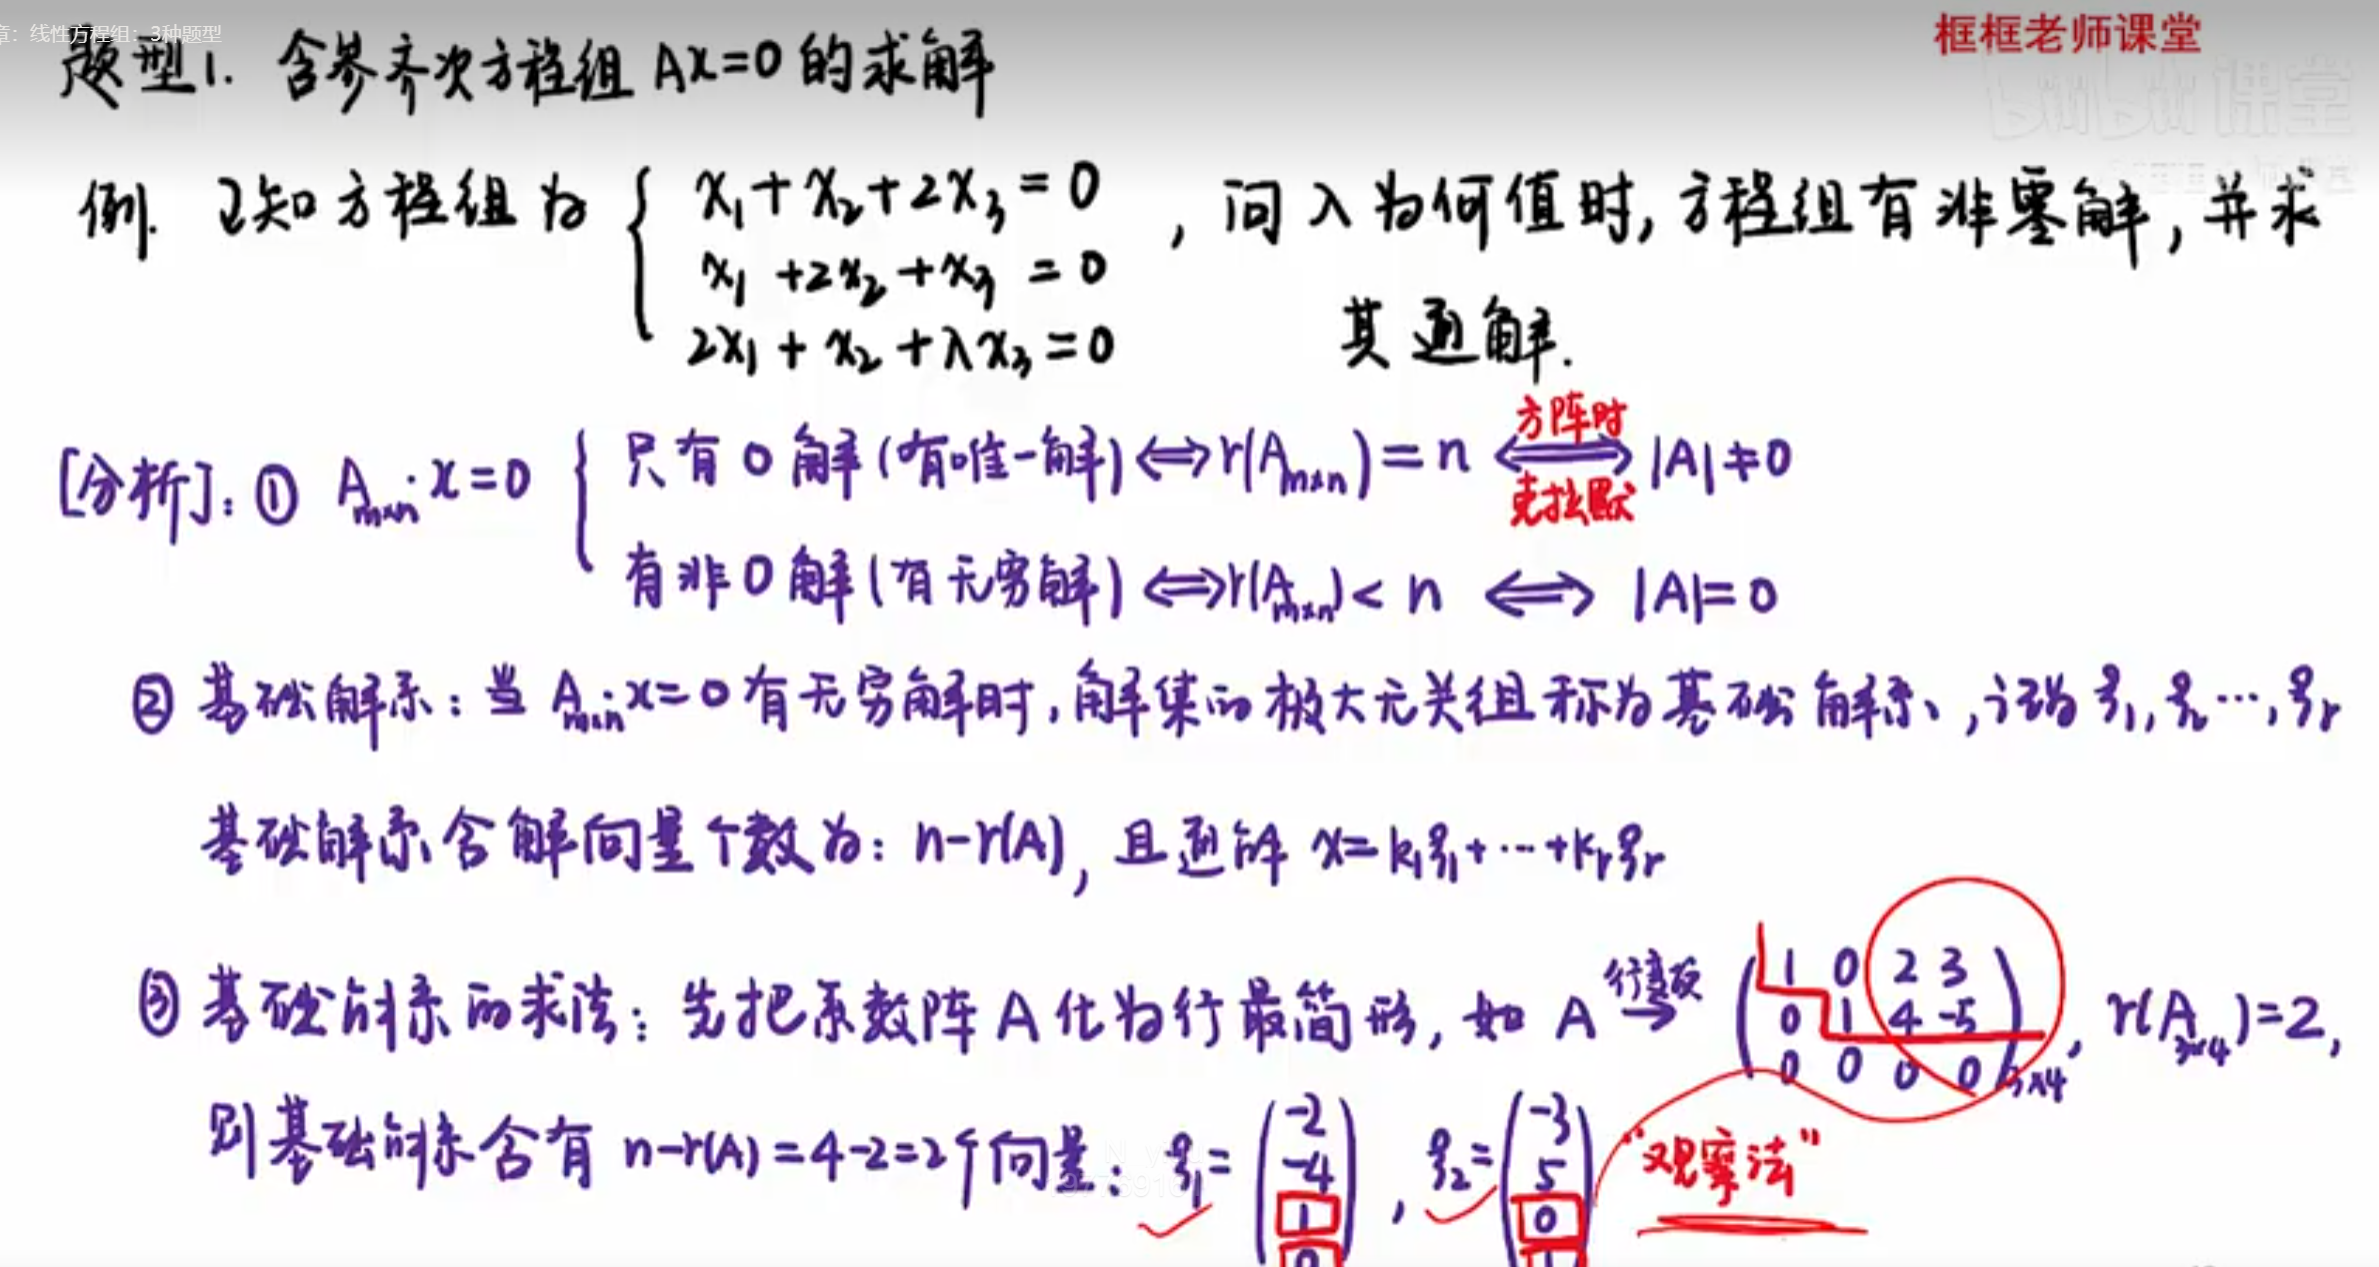 章: 线性方程组: 3种题型
框框老师课堂
题型1. 含参齐次方程组 Ax=0 的求解
bilibili课堂
例. 已知方程组为 { x₁+x₂+2x₃=0 , 问λ为何值时, 方程组有非零解, 并求
x₁+2x₂+x₃=0
2x₁+x₂+λx₃=0 其通解.
[分析]: ① Aₘₓₙ·x=0 { 只有0解(有唯一解) ⟺ r(Aₘₓₙ)=n ⟺ |A|≠0
方阵时
克拉默
有非0解(有无穷解) ⟺ r(Aₘₓₙ)<n ⟺ |A|=0
② 基础解系: 当 Aₘₓₙ·x=0 有无穷解时, 解集的极大无关组称为基础解系, 记为 ξ₁, ξ₂…, ξᵣ
基础解系含解向量个数为: n-r(A), 且通解 x=k₁ξ₁+…+kᵣξᵣ
③ 基础解系的求法: 先把系数阵A化为行最简形, 如 A 行变换→ (1 0 2 3
0 1 4 -5
0 0 0 0)₃ₓ₄, r(A₃ₓ₄)=2,
则基础解系含有 n-r(A)=4-2=2个向量: ξ₁= (-2 -4 1 0 , ξ₂= (-3 5 0 1 "观察法"